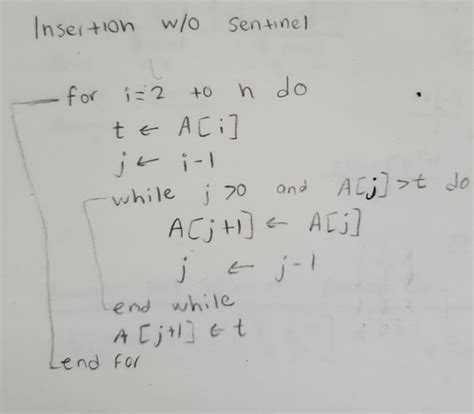 Insertion w/o Sentinel
for i=2 to n do
t ← A[i]
j ← i-1
while j >0 and A[j]>t do
A[j+1] ← A[j]
j ← j-1
end while
A[j+1] ← t
end for